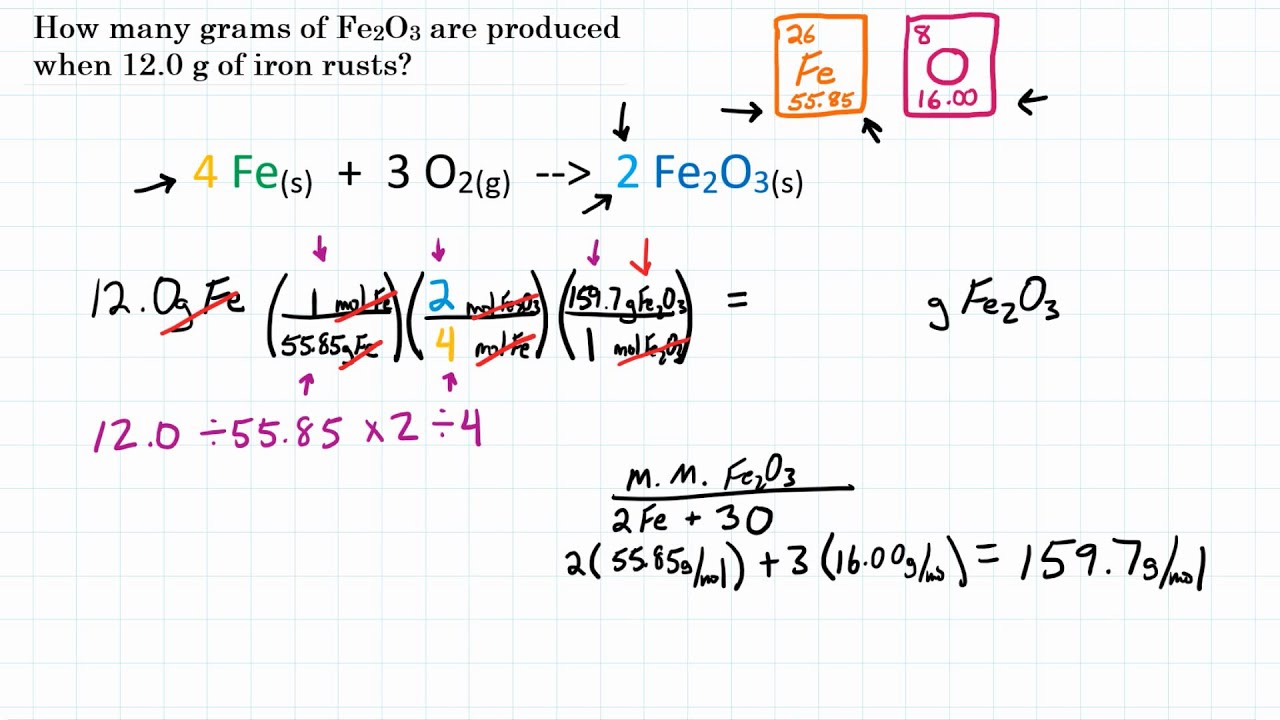 How many grams of Fe₂O₃ are produced
when 12.0 g of iron rusts?
26
Fe
55.85
8
O
16.00
4 Fe(s) + 3 O₂(g) --> 2 Fe₂O₃(s)
12.0g Fe (1 mol Fe / 55.85g Fe)(2 mol Fe₂O₃ / 4 mol Fe)(159.7 g Fe₂O₃ / 1 mol Fe₂O₃) = g Fe₂O₃
12.0 ÷ 55.85 × 2 ÷ 4
M. M. Fe₂O₃
2Fe + 3O
2(55.85g/mol) + 3(16.00g/mol) = 159.7g/mol